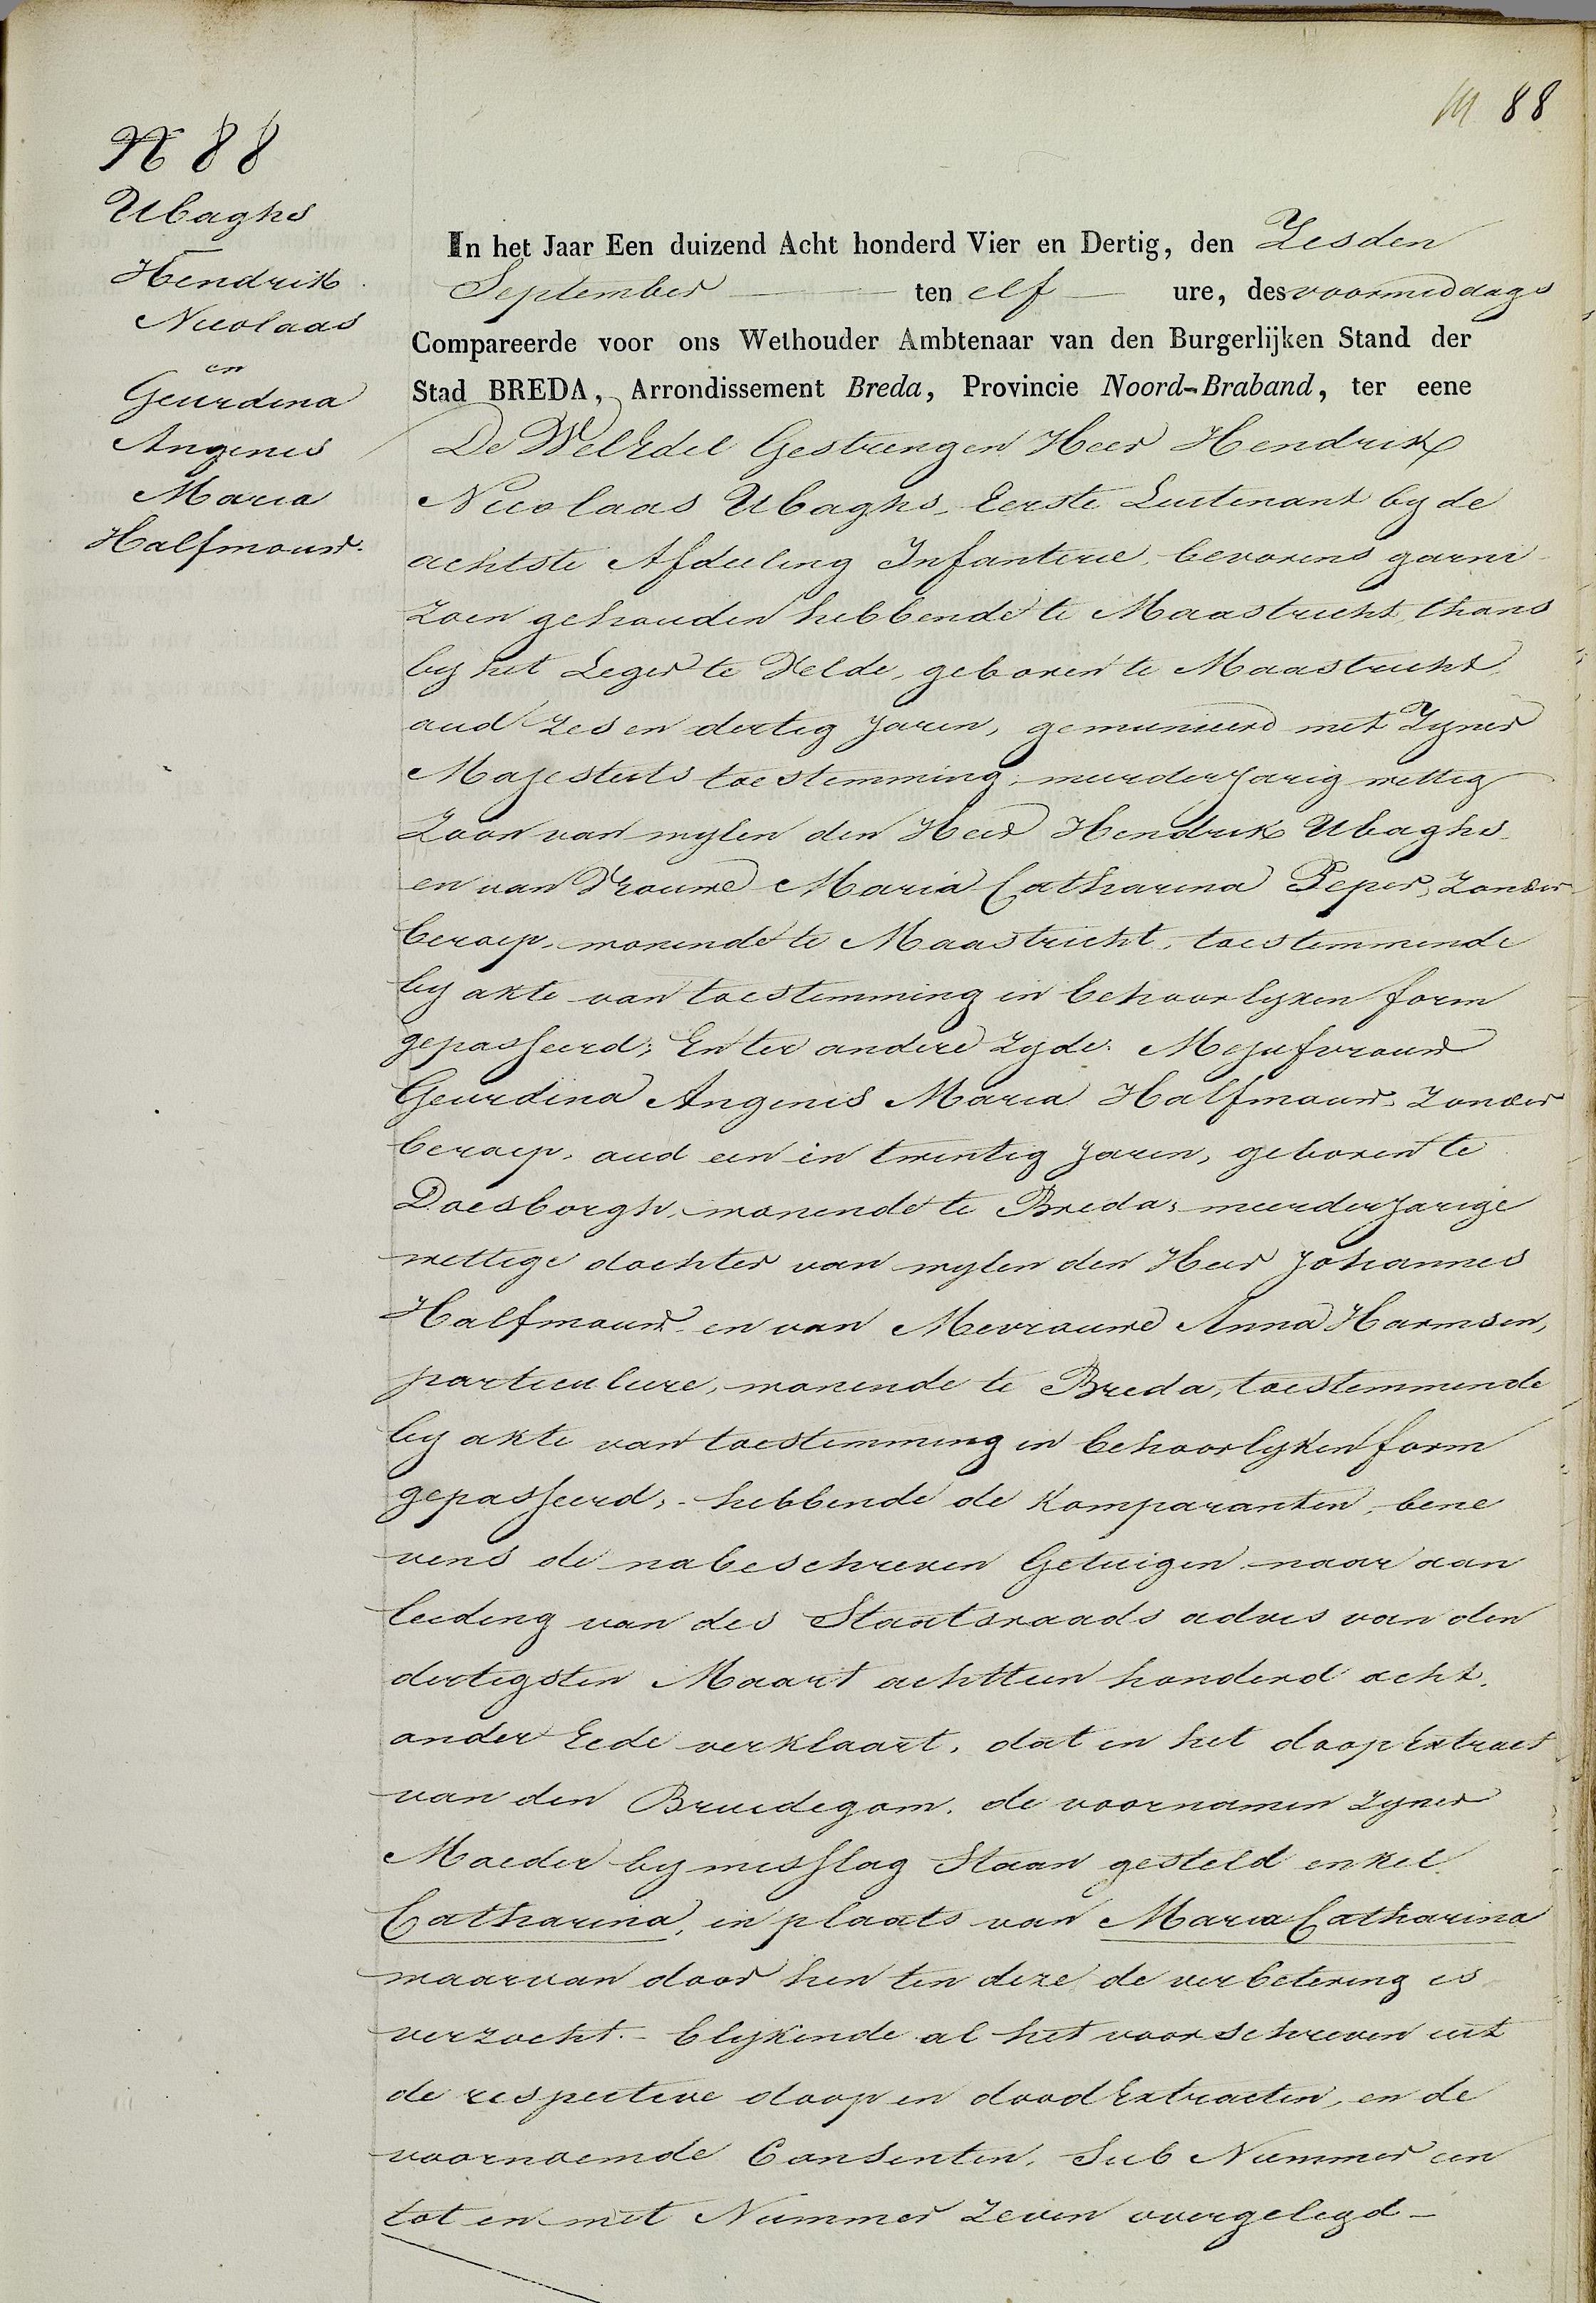 88
N 88
Ubaghs
Hendrik
Nicolaas
en
Geurdina
Angenis
Maria
Halfmouw.
In het Jaar Een duizend Acht honderd Vier en Dertig, den Zesden
September ten elf ure, des voormiddags
Compareerde voor ons Wethouder Ambtenaar van den Burgerlijken Stand der
Stad BREDA, Arrondissement Breda, Provincie Noord-Braband, ter eene
De WelEdel Gestrengen Heer Hendrik
Nicolaas Ubaghs, Eerste Luitenant by de
achtste Afdeeling Infanterie, bevorens garni
zoen gehouden hebbende te Maastricht, thans
by het Leger te Velde, geboren te Maastricht,
oud zes en dertig Jaren, gemunieerd met Zyner
Majesteits toestemming, meerderjarig wettig
Zoon van wylen den Heer Hendrik Ubaghs
en van Vrouwe Maria Catharina Peper, Zonder
beroep, wonende te Maastricht, toestemmende
by akte van toestemming in behoorlyken form
gepasseerd; En ter andere zyde. Mejufvrouw
Geurdina Angenis Maria Halfmouw, Zonder
beroep, oud een en twintig Jaren, geboren te
Doesborgh, wonende te Breda, meerderjarige
wettige dochter van wylen den Heer Johannes
Halfmouw en van Mevrouwe Anna Harmsen,
particuliere, wonende te Breda, toestemmende
by akte van toestemming in behoorlyken form
gepasseerd, - hebbende de Komparanten, bene
vens de nabeschreven Getuigen naar aan
leiding van des Staatsraads advis van den
dertigsten Maart achttien honderd acht,
onder Eede verklaart, dat in het doop Extract
van den Bruidegom, de voornamen Zyner
Moeder by misslag Staan gesteld enkel
Catharina, in plaats van Maria Catharina
waarvan door hen ten deze de verbetering is
verzocht. - blykende al het voorschreven uit
de respective doop en dood Extracten, en de
voornoemde Consenten, Sub Nummer een
tot en met Nummer Zeven overgelegd -